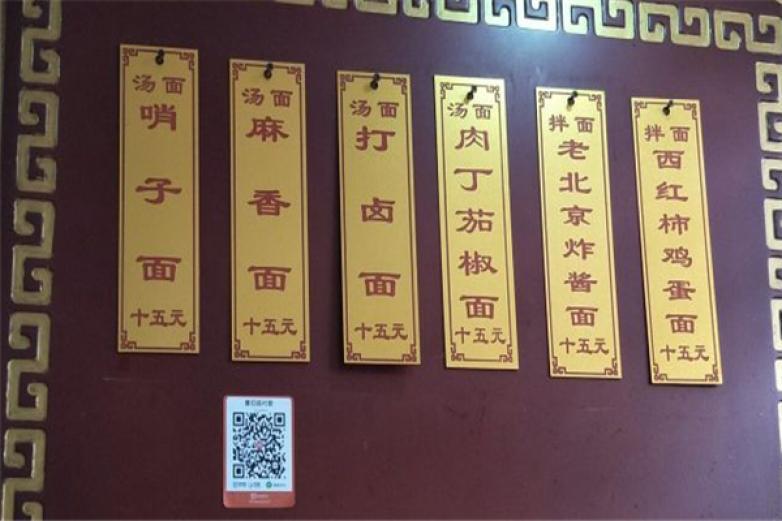 汤面
哨子面
十五元
汤面
麻香面
十五元
汤面
打卤面
十五元
汤面
肉丁茄椒面
十五元
拌面
老北京炸酱面
十五元
拌面
西红柿鸡蛋面
十五元